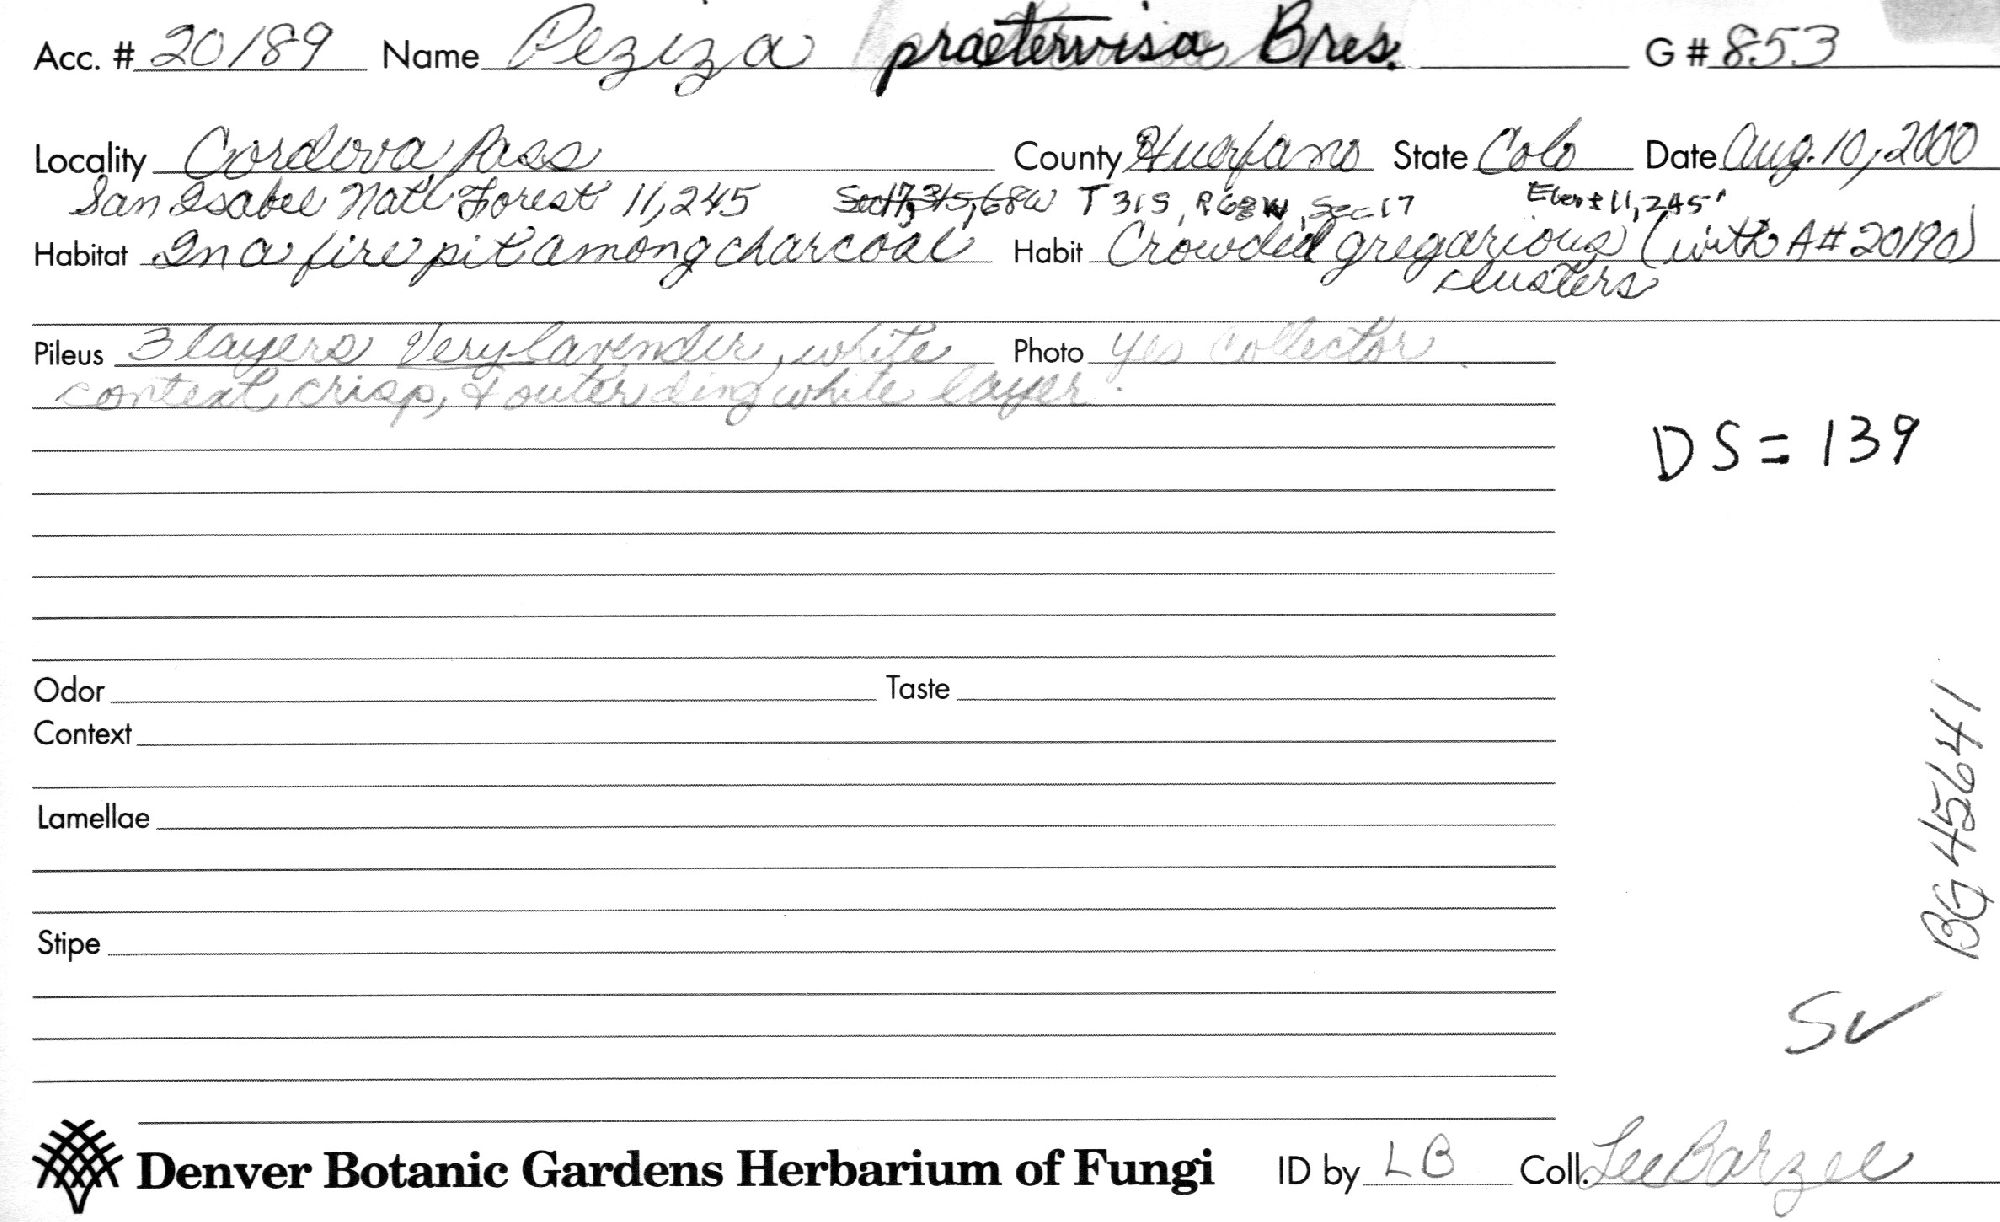 Acc. # 20189 Name Peziza praetervisa Bres. G # 853
Locality Cordova Pass County Huerfano State Colo Date Aug. 10, 2000
San Isabel Nat'l Forest 11,245 Sec 17, 31S, 68W T 31S, R68W, Sec 17 Elev ± 11,245'
Habitat In a fire pit among charcoal Habit Crowded gregarious (with A# 20190)
clusters
Pileus 3 layers Very lavender, white Photo yes collector
context crisp, & outer ding white layer.
DS = 139
Odor Taste
Context
Lamellae
Stipe
BG 45641
SV
Denver Botanic Gardens Herbarium of Fungi ID by LB Coll. Lee Barzee